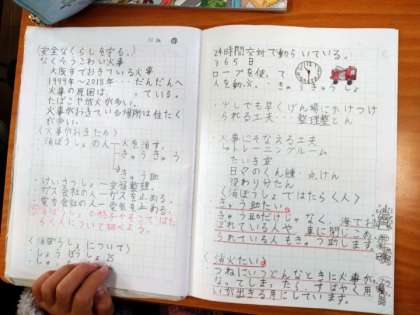 安全なくらしを守る。
なくそうこわい火事
大阪市でおきている火事
1999年～2018年…だんだんへ
火事の原因は、　ている。
たばこや放火が多い。
火事がおきている場所は住たく
が多い。
〈火事がおきたら〉
・消ぼうしょの人→火を消す。
きゅう
きゅう助
・けいさつしょ→交通整理。
・ガス会社の人→ガスを止める。
・電力会社の人→電気を止める。
らく人について調べよう。
〈消ぼうしょについて〉
・しょうぼうしょ 25
24時間交対で動らいている。
365日
ロープを使って
人を助ける。
きゅうきゅうしょ
・少しでも早くげん場にかけつけ
られる工夫…整理整とん
・火事にそなえる工夫
トレーニングルーム
たいき室
日々のくん練・点けん
役わり分たん
〈消ぼうしょではたらく人〉
きゅう助たい
きゅう助だけじゃなく、海で
されている人や車に閉じこめ
られている人もきゅう助します。
消火たい
つねにいつどんなときに火事が
なってしまったら、すばやく用
いが出きる用にしています。